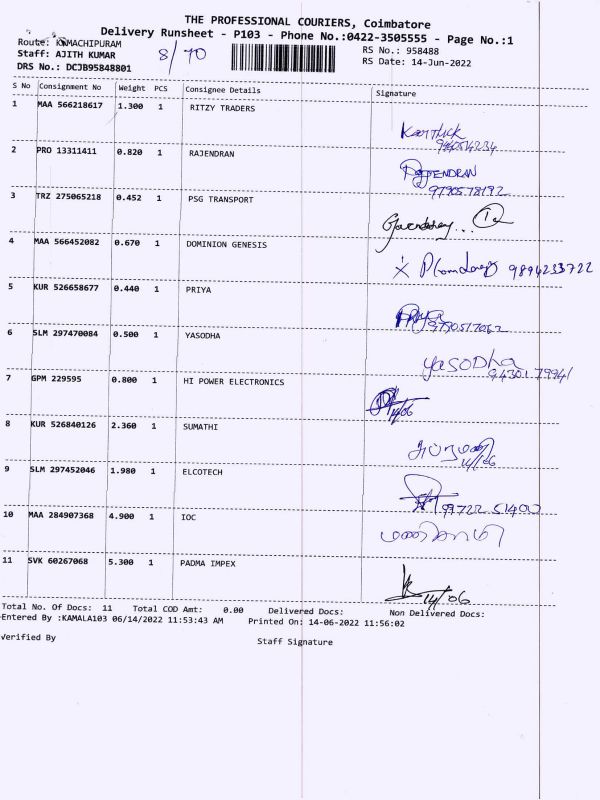 THE PROFESSIONAL COURIERS, Coimbatore
Delivery Runsheet - P103 - Phone No.:0422-3505555 - Page No.:1
Route: KAMACHIPURAM
Staff: AJITH KUMAR
DRS No.: DCJB95848801
8/70
RS No.: 958488
RS Date: 14-Jun-2022
S No Consignment No Weight PCS Consignee Details Signature
1 MAA 566218617 1.300 1 RITZY TRADERS
Karthick
2 PRO 13311411 0.820 1 RAJENDRAN
RAJENDRAN
9790578192
3 TRZ 275065218 0.452 1 PSG TRANSPORT
4 MAA 566452082 0.670 1 DOMINION GENESIS
9894233722
5 KUR 526658677 0.440 1 PRIYA
9790517062
6 SLM 297470084 0.500 1 YASODHA
yasodha
9430179941
7 GPM 229595 0.800 1 HI POWER ELECTRONICS
14/06
8 KUR 526840126 2.360 1 SUMATHI
14/06
9 SLM 297452046 1.980 1 ELCOTECH
99722 51400
10 MAA 284907368 4.900 1 IOC
11 SVK 60267068 5.300 1 PADMA IMPEX
14/06
Total No. Of Docs: 11 Total COD Amt: 0.00 Delivered Docs: Non Delivered Docs:
Entered By :KAMALA103 06/14/2022 11:53:43 AM Printed On: 14-06-2022 11:56:02
Verified By Staff Signature